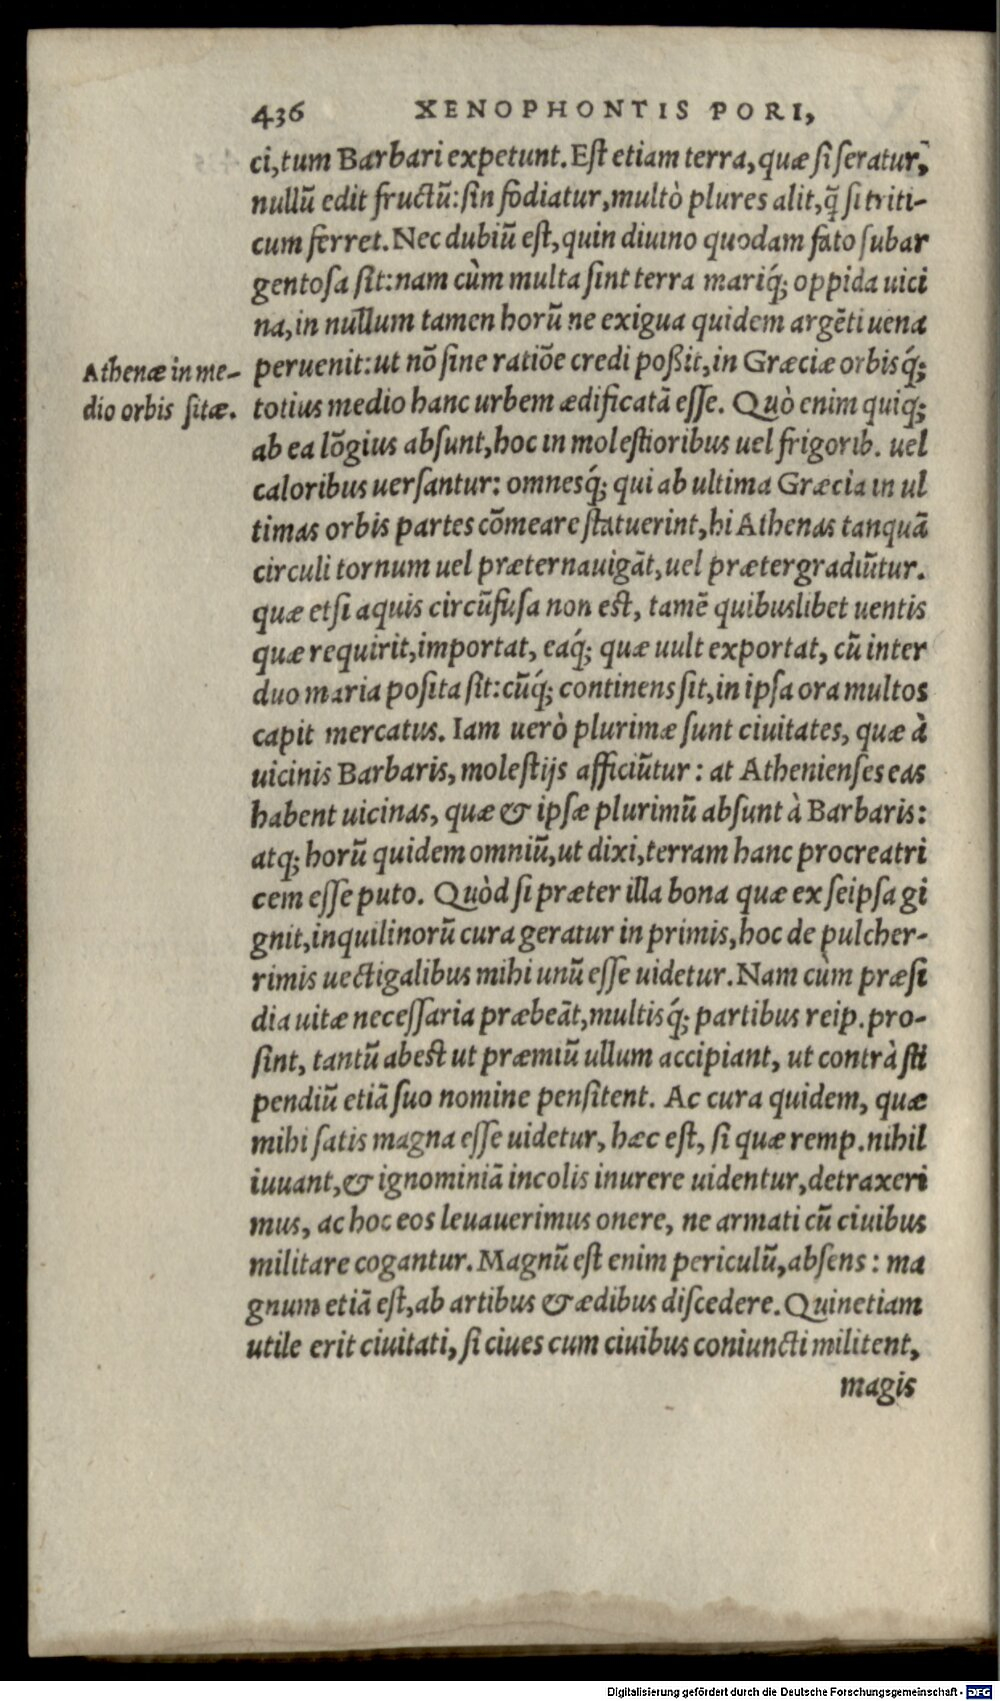 436 XENOPHONTIS PORI,
ci, tum Barbari expetunt. Est etiam terra, quæ si seratur,
nullũ edit fructũ: sin fodiatur, multò plures alit, q̃ si triti-
cum ferret. Nec dubiũ est, quin diuino quodam fato subar
gentosa sit: nam cùm multa sint terra mariq́; oppida uici
na, in nullum tamen horũ ne exigua quidem argẽti uena
peruenit: ut nõ sine ratiõe credi poßit, in Græciæ orbisq́;
Athenæ in me-
dio orbis sitæ.
totius medio hanc urbem ædificatã esse. Quò enim quiq;
ab ea lõgius absunt, hoc in molestioribus uel frigorib. uel
caloribus uersantur: omnesq́; qui ab ultima Græcia in ul
timas orbis partes cõmeare statuerint, hi Athenas tanquã
circuli tornum uel præternauigãt, uel prætergradiũtur.
quæ etsi aquis circũfusa non est, tamẽ quibuslibet uentis
quæ requirit, importat, eaq́; quæ uult exportat, cũ inter
duo maria posita sit: cũq́; continens sit, in ipsa ora multos
capit mercatus. Iam uerò plurimæ sunt ciuitates, quæ à
uicinis Barbaris, molestijs afficiũtur: at Athenienses eas
habent uicinas, quæ & ipsæ plurimũ absunt à Barbaris:
atq; horũ quidem omniũ, ut dixi, terram hanc procreatri
cem esse puto. Quòd si præter illa bona quæ ex seipsa gi
gnit, inquilinorũ cura geratur in primis, hoc de pulcher-
rimis uectigalibus mihi unũ esse uidetur. Nam cùm præsi
dia uitæ necessaria præbeãt, multisq́; partibus reip. pro-
sint, tantũ abest ut præmiũ ullum accipiant, ut contrà sti
pendiũ etiã suo nomine pensitent. Ac cura quidem, quæ
mihi satis magna esse uidetur, hæc est, si quæ remp. nihil
iuuant, & ignominiã incolis inurere uidentur, detraxeri
mus, ac hoc eos leuauerimus onere, ne armati cũ ciuibus
militare cogantur. Magnũ est enim periculũ, absens: ma
gnum etiã est, ab artibus & ædibus discedere. Quinetiam
utile erit ciuitati, si ciues cum ciuibus coniuncti militent,
magis
Digitalisierung gefördert durch die Deutsche Forschungsgemeinschaft - DFG